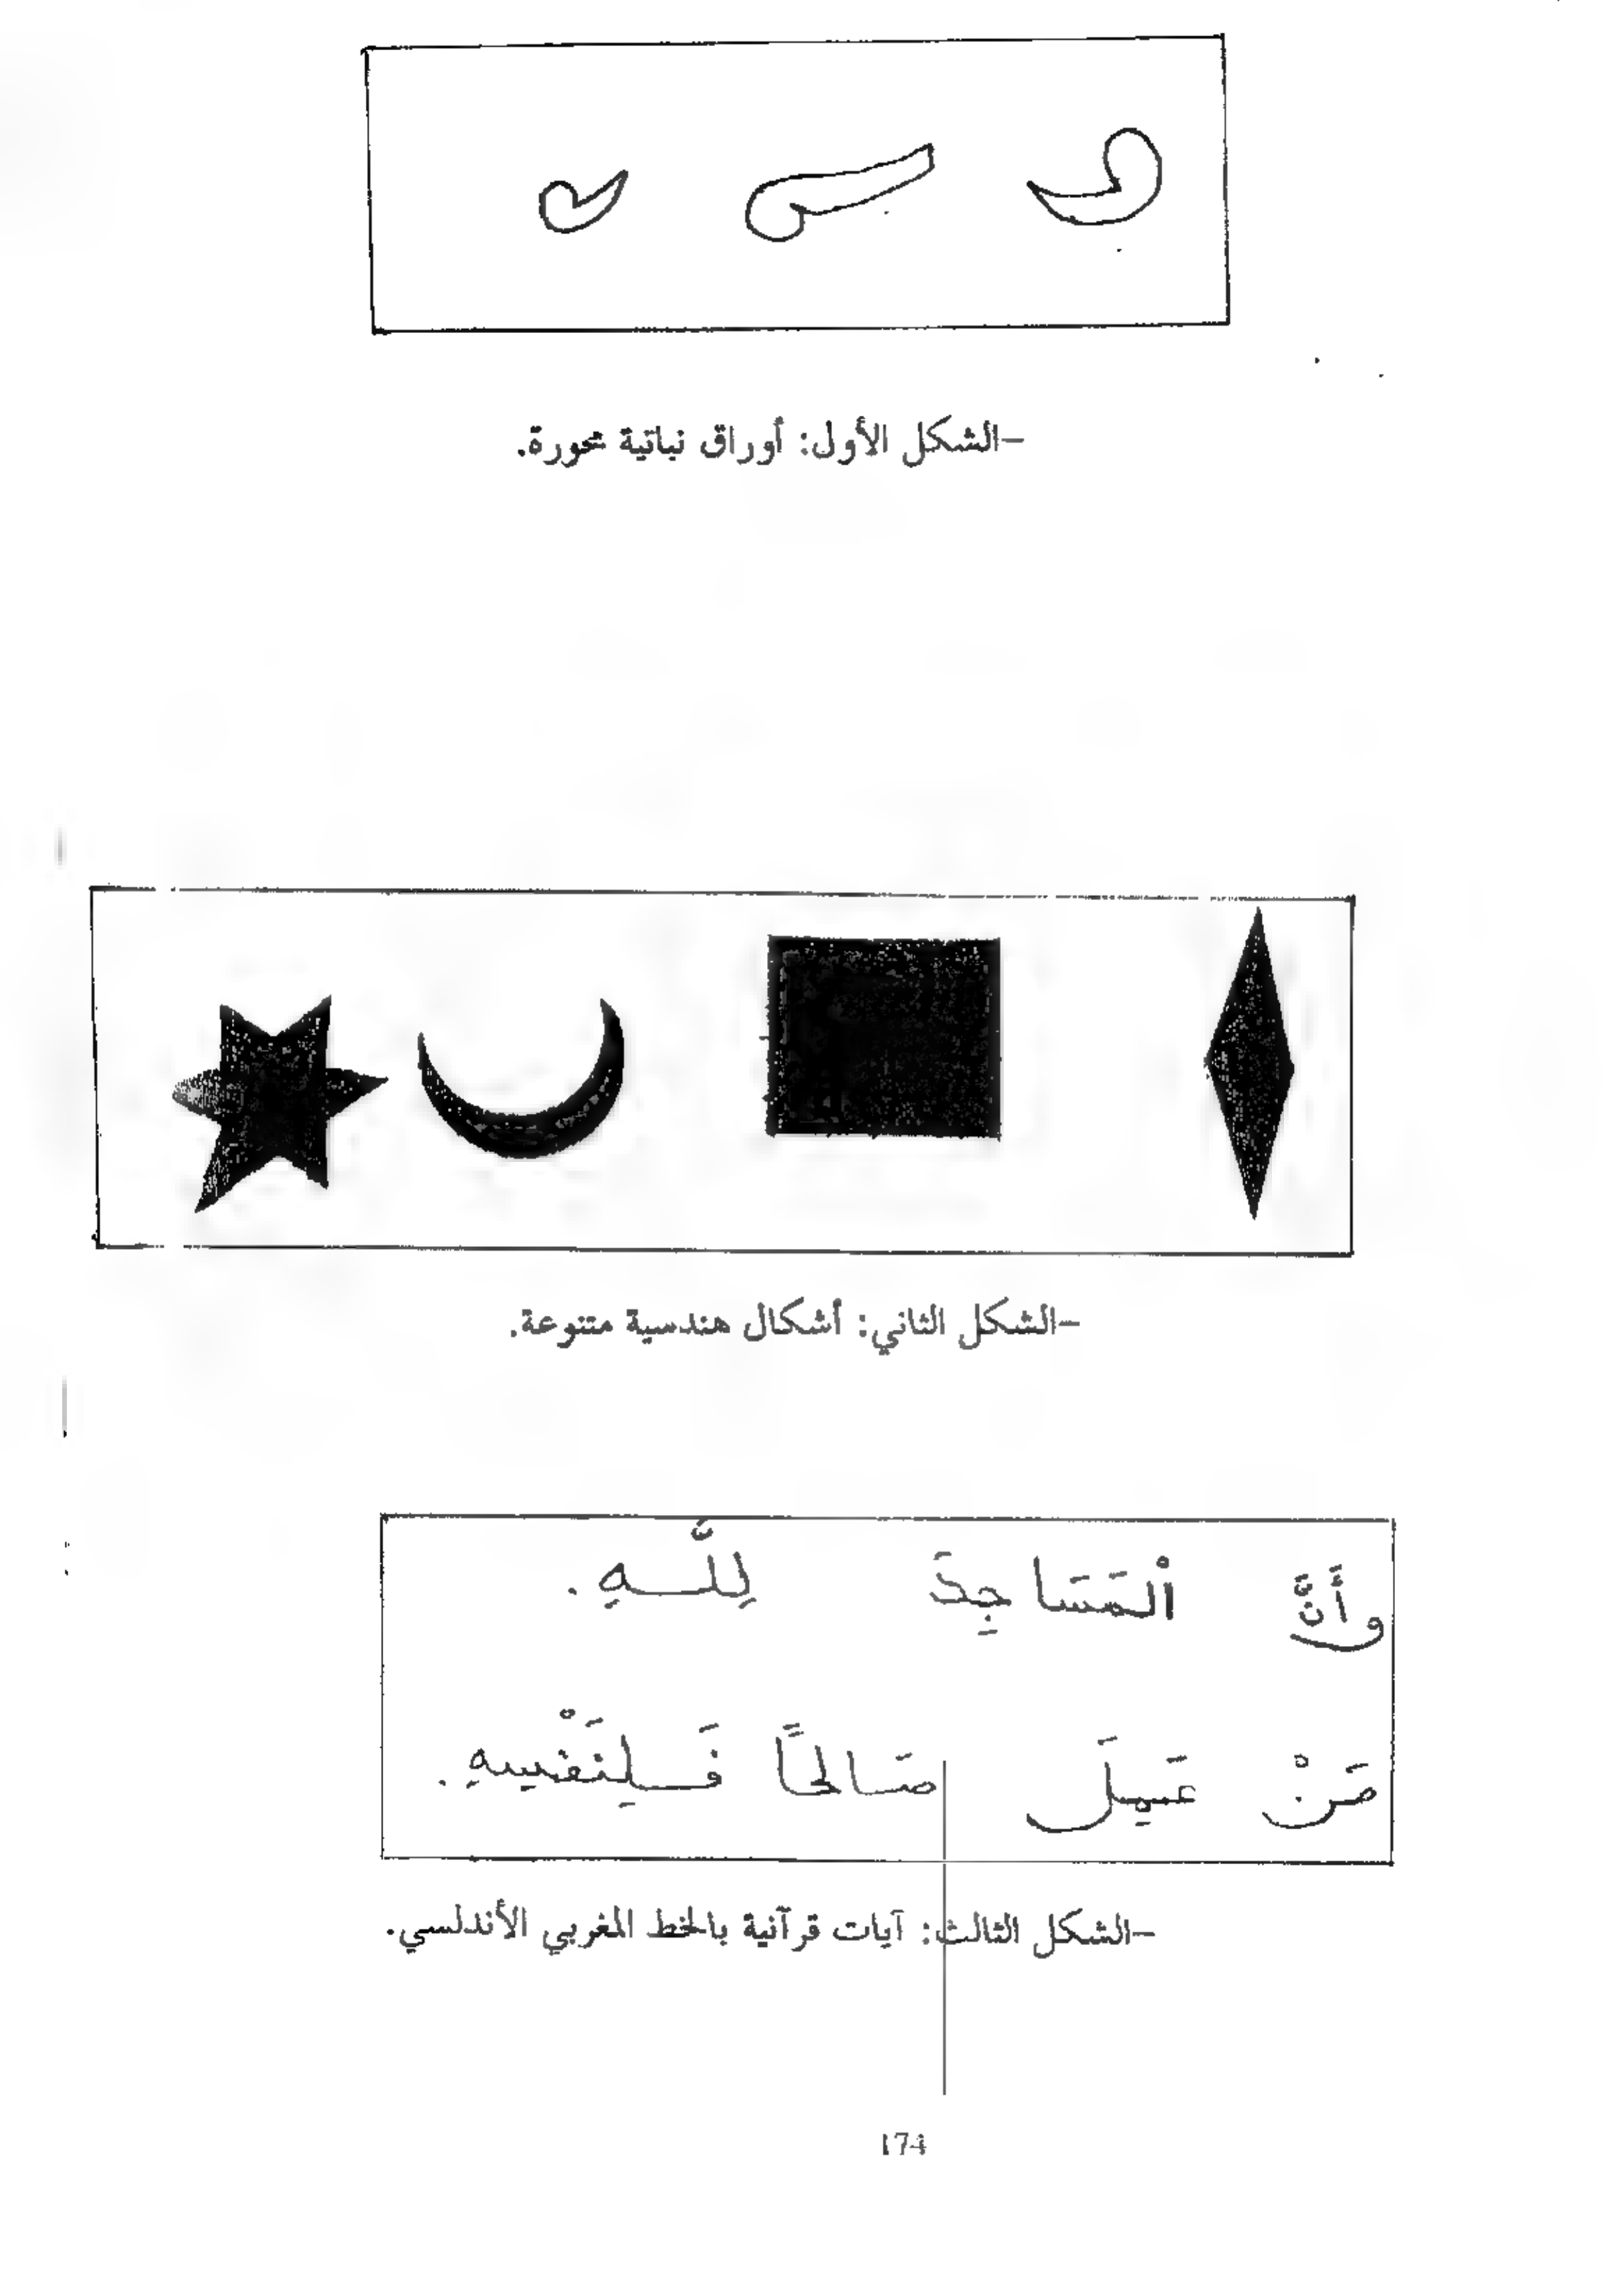 -الشكل الأول: أوراق نباتية محورة.
-الشكل الثاني: أشكال هندسية متنوعة.
وأَنَّ اْلمَسَاجِدَ لِلَّهِ.
مَنْ عَمِلَ صَالحًا فَلِنَفْسِهِ.
-الشكل الثالث: آيات قرآنية بالخط المغربي الأندلسي.
174